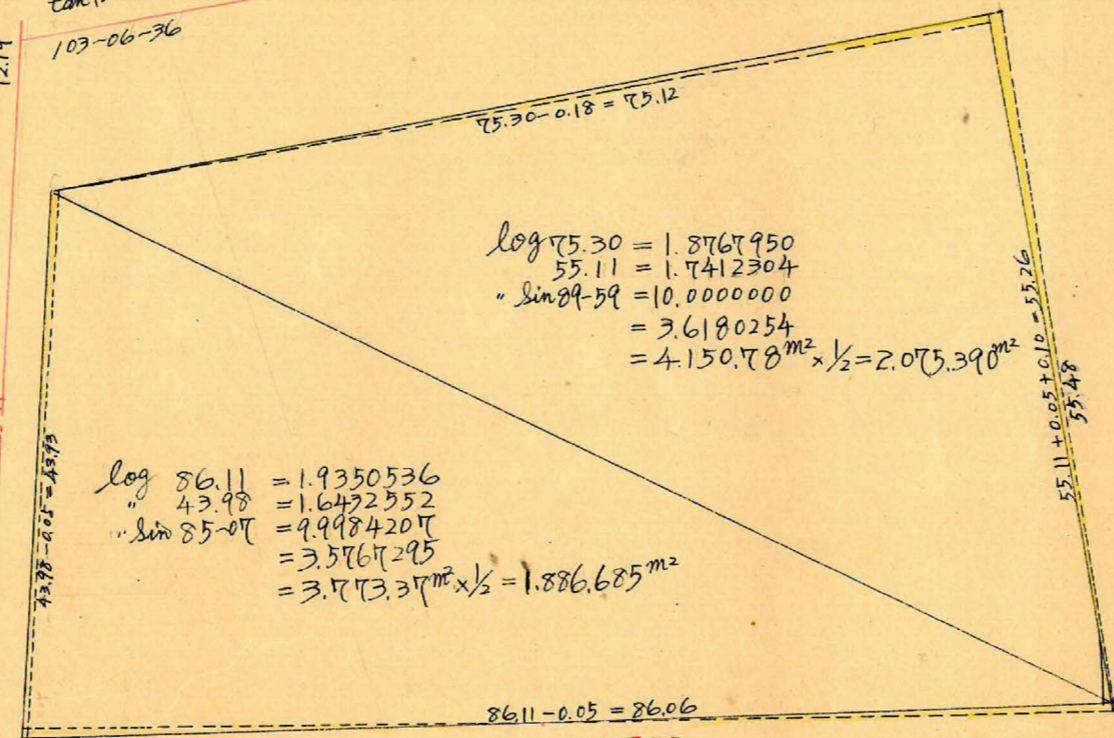 103-06-36
12.19
75.30-0.18 = 75.12
log 75.30 = 1.8767950
55.11 = 1.7412304
" Sin 89-59 = 10.0000000
= 3.6180254
= 4.150.78 m² × 1/2 = 2.075.390 m²
55.11 + 0.05 + 0.10 = 55.26
55.48
43.98-0.05 = 43.93
log 86.11 = 1.9350536
" 43.98 = 1.6432552
" Sin 85-07 = 9.9984207
= 3.5767295
= 3.773.37 m² × 1/2 = 1.886.685 m²
86.11-0.05 = 86.06